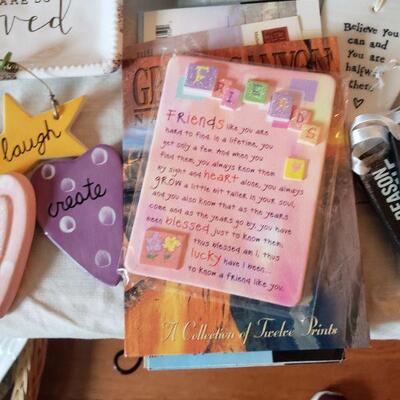 ved
Believe you
can and
you are
halfway
there.
GRAND CANYON
FRIENDS
laugh
create
FRIENDS like you are
hard to find in a lifetime, you
get only a few and when you
find them, you always know them
by sight and heart alone, you always
GROW a little bit taller in your soul,
and you also know that as the years
come and as the years go by, you have
been blessed just to know them,
thus blessed am I, thus
lucky have I been...
to know a friend like you.
REASON
A Collection of Twelve Prints